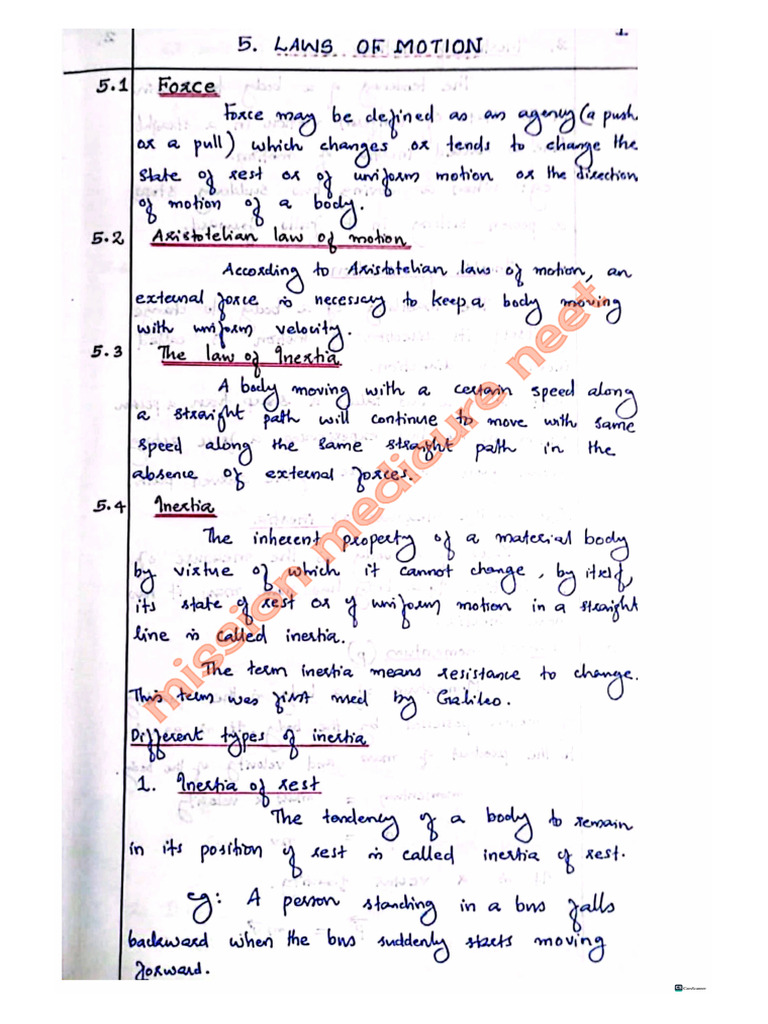 1
5. LAWS OF MOTION
5.1 Force
Force may be defined as an agency (a push
or a pull) which changes or tends to change the
state of rest or of uniform motion or the direction
of motion of a body.
5.2 Aristotelian law of motion
According to Aristotelian law of motion, an
external force is necessary to keep a body moving
with uniform velocity.
5.3 The law of Inertia
A body moving with a certain speed along
a straight path will continue to move with same
speed along the same straight path in the
absence of external forces.
5.4 Inertia
The inherent property of a material body
by virtue of which it cannot change, by itself,
its state of rest or of uniform motion in a straight
line is called inertia.
The term inertia means resistance to change.
This term was first used by Galileo.
Different types of inertia
1. Inertia of rest
The tendency of a body to remain
in its position of rest is called inertia of rest.
eg: A person standing in a bus falls
backward when the bus suddenly starts moving
forward.
mission medicure neet
CS CamScanner